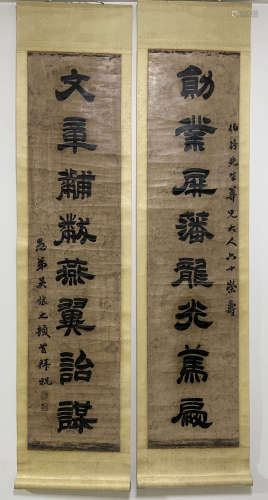 伯先生尊兄大人六十榮壽
勛業屏藩龍光
文章黼黻燕翼詒謀
愚弟吳之頓首拜祝